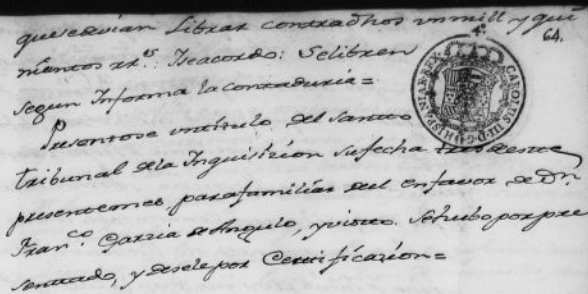 que devian Librar contra dhos un mill y qui
nientos rr.s Se acordo: Se libren
segun Informa la contaduria=
Presentose un titulo del santo
tribunal de la Inquisizion su fecha
presente mes, para familiar del en favor de Dn
Franco Garzia de Angulo, y visto. Se hubo por pre
sentado, y desele por Certificazion=
64.
CAROLUS III D.G. HISPANIAR. REX